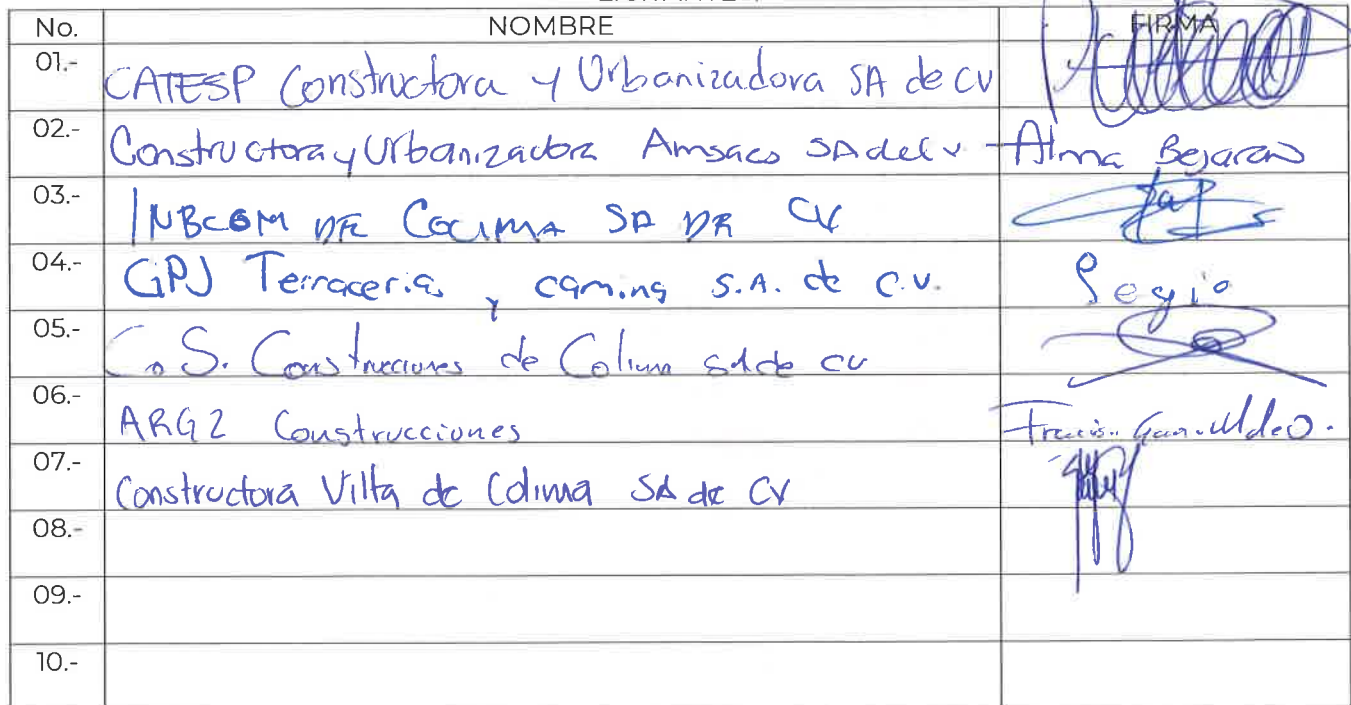 No. NOMBRE FIRMA
01.- CATESP Constructora y Urbanizadora SA de CV
02.- Constructora y Urbanizadora Amsaco SA de CV Alma Bejarano
03.- INBCOM DE COLIMA SA DE CV
04.- GPJ Terraceria y camins S.A. de C.V. Segio
05.- S. Construcciones de Colima SA de CV
06.- ARG2 Construcciones
07.- Constructora Villa de Colima SA de CV
08.-
09.-
10.-